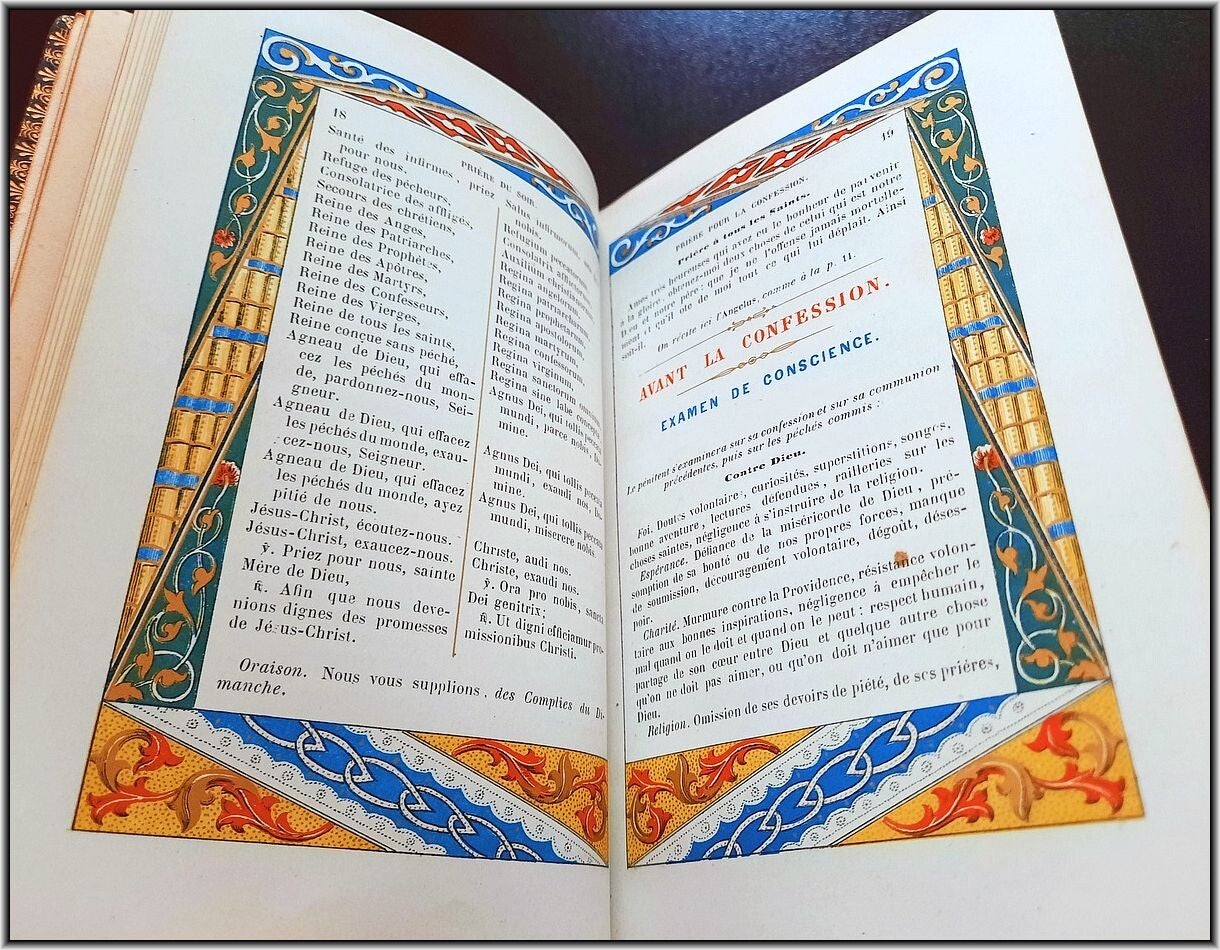 18
PRIÈRE DU SOIR.
Santé des infirmes, priez
pour nous.
Refuge des pécheurs,
Consolatrice des affligés,
Secours des chrétiens,
Reine des Anges,
Reine des Patriarches,
Reine des Prophètes,
Reine des Apôtres,
Reine des Martyrs,
Reine des Confesseurs,
Reine des Vierges,
Reine de tous les saints,
Reine conçue sans péché,
Agneau de Dieu, qui effa-
cez les péchés du mon-
de, pardonnez-nous, Sei-
gneur.
Agneau de Dieu, qui effacez
les péchés du monde, exau-
cez-nous, Seigneur.
Agneau de Dieu, qui effacez
les péchés du monde, ayez
pitié de nous.
Jésus-Christ, écoutez-nous.
Jésus-Christ, exaucez-nous.
℣. Priez pour nous, sainte
Mère de Dieu,
℟. Afin que nous deve-
nions dignes des promesses
de Jésus-Christ.
Salus infirmorum,
nobis.
Refugium peccatorum,
Consolatrix afflictorum,
Auxilium christianorum,
Regina angelorum,
Regina patriarcharum,
Regina prophetarum,
Regina apostolorum,
Regina martyrum,
Regina confessorum,
Regina virginum,
Regina sanctorum omnium,
Regina sine labe concepta,
Agnus Dei, qui tollis peccata
mundi, parce nobis, Do-
mine.
Agnus Dei, qui tollis peccata
mundi, exaudi nos, Do-
mine.
Agnus Dei, qui tollis peccata
mundi, miserere nobis.
Christe, audi nos.
Christe, exaudi nos.
℣. Ora pro nobis, sancta
Dei genitrix;
℟. Ut digni efficiamur pro-
missionibus Christi.
Oraison. Nous vous supplions, des Complies du Di-
manche.
19
PRIÈRE POUR LA CONFESSION.
Prière à tous les Saints.
Ames très heureuses qui avez eu le bonheur de parvenir
à la gloire, obtenez-moi deux choses de celui qui est notre
Dieu et notre père: que je ne l'offense jamais mortelle-
ment et qu'il ôte de moi tout ce qui lui déplait. Ainsi
soit-il.
On récite ici l'Angelus, comme à la p. 11.
AVANT LA CONFESSION.
EXAMEN DE CONSCIENCE.
Le pénitent s'examinera sur sa confession et sur sa communion
précédentes, puis sur les péchés commis:
Contre Dieu.
Foi. Doutes volontaires, curiosités, superstitions, songes,
bonne aventure, lectures défendues, railleries sur les
choses saintes, négligence à s'instruire de la religion.
Espérance. Défiance de la miséricorde de Dieu, pré-
somption de sa bonté ou de nos propres forces, manque
de soumission, découragement volontaire, dégoût, déses-
poir.
Charité. Murmure contre la Providence, résistance volon-
taire aux bonnes inspirations, négligence à empêcher le
mal quand on le doit et quand on le peut: respect humain,
partage de son cœur entre Dieu et quelque autre chose
qu'on ne doit pas aimer, ou qu'on doit n'aimer que pour
Dieu.
Religion. Omission de ses devoirs de piété, de ses prières,